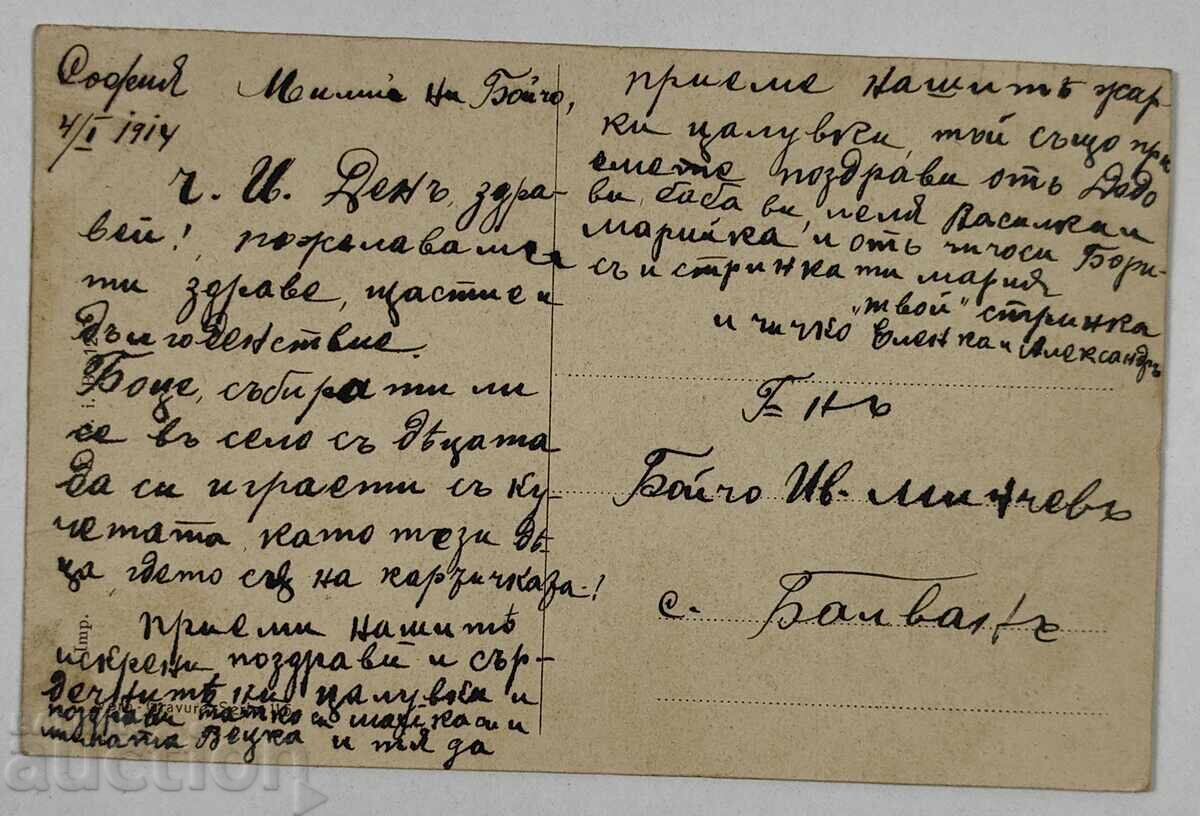 София
4/I 1914
Милий ни Бойчо,
ч. И. Денъ, здра-
вей! пожелаваме
ти здраве, щастие и
дългоденствие.
Боце, събират ти ли
се въ село съ дѣцата
да си играети съ ку-
четата като тези дѣ-
ца гдето сѫ на карѫичказа!
приеми нашитѣ
искрени поздрави и сър-
дечнитѣ ни цалувки и
поздрави татко си майка си и
милата Вецка и тя да
приеме нашитѣ жар-
ки цалувки, той също при
емете поздрави отъ Дядо
ви, баба ви, леля Василка и
Марийка, и отъ чичоси Бори-
съ и стринка ти Мария
"твой" стринка
и чичко Еленка и Александръ
Г-нъ
Бойчо Ив. Минчевъ
с. Балванъ
Imp.
auction